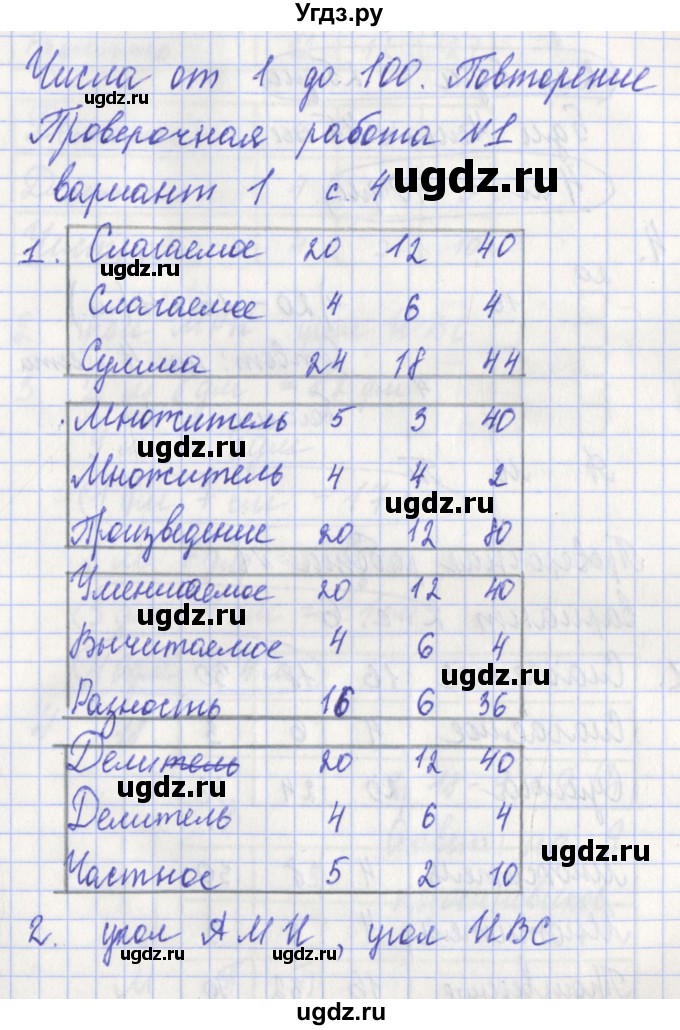 Угдз.ру
Числа от 1 до 100. Повторение
ugdz.ru
Проверочная работа №1
ugdz.ru
вариант 1 с. 4
1. Слагаемое 20 12 40
ugdz.ru
Слагаемое 4 6 4
Сумма 24 18 44
Множитель 5 3 40
ugdz.ru
Множитель 4 4 2
ugdz.ru
Произведение 20 12 80
Уменшаемое 20 12 40
ugdz.ru
Вычитаемое 4 6 4
ugdz.ru
Разность 16 6 36
Делитель 20 12 40
ugdz.ru
Делитель 4 6 4
ugdz.ru
Частное 5 2 10
2. угол АМН, угол НВС
ugdz.ru ugdz.ru
ugdz.ru